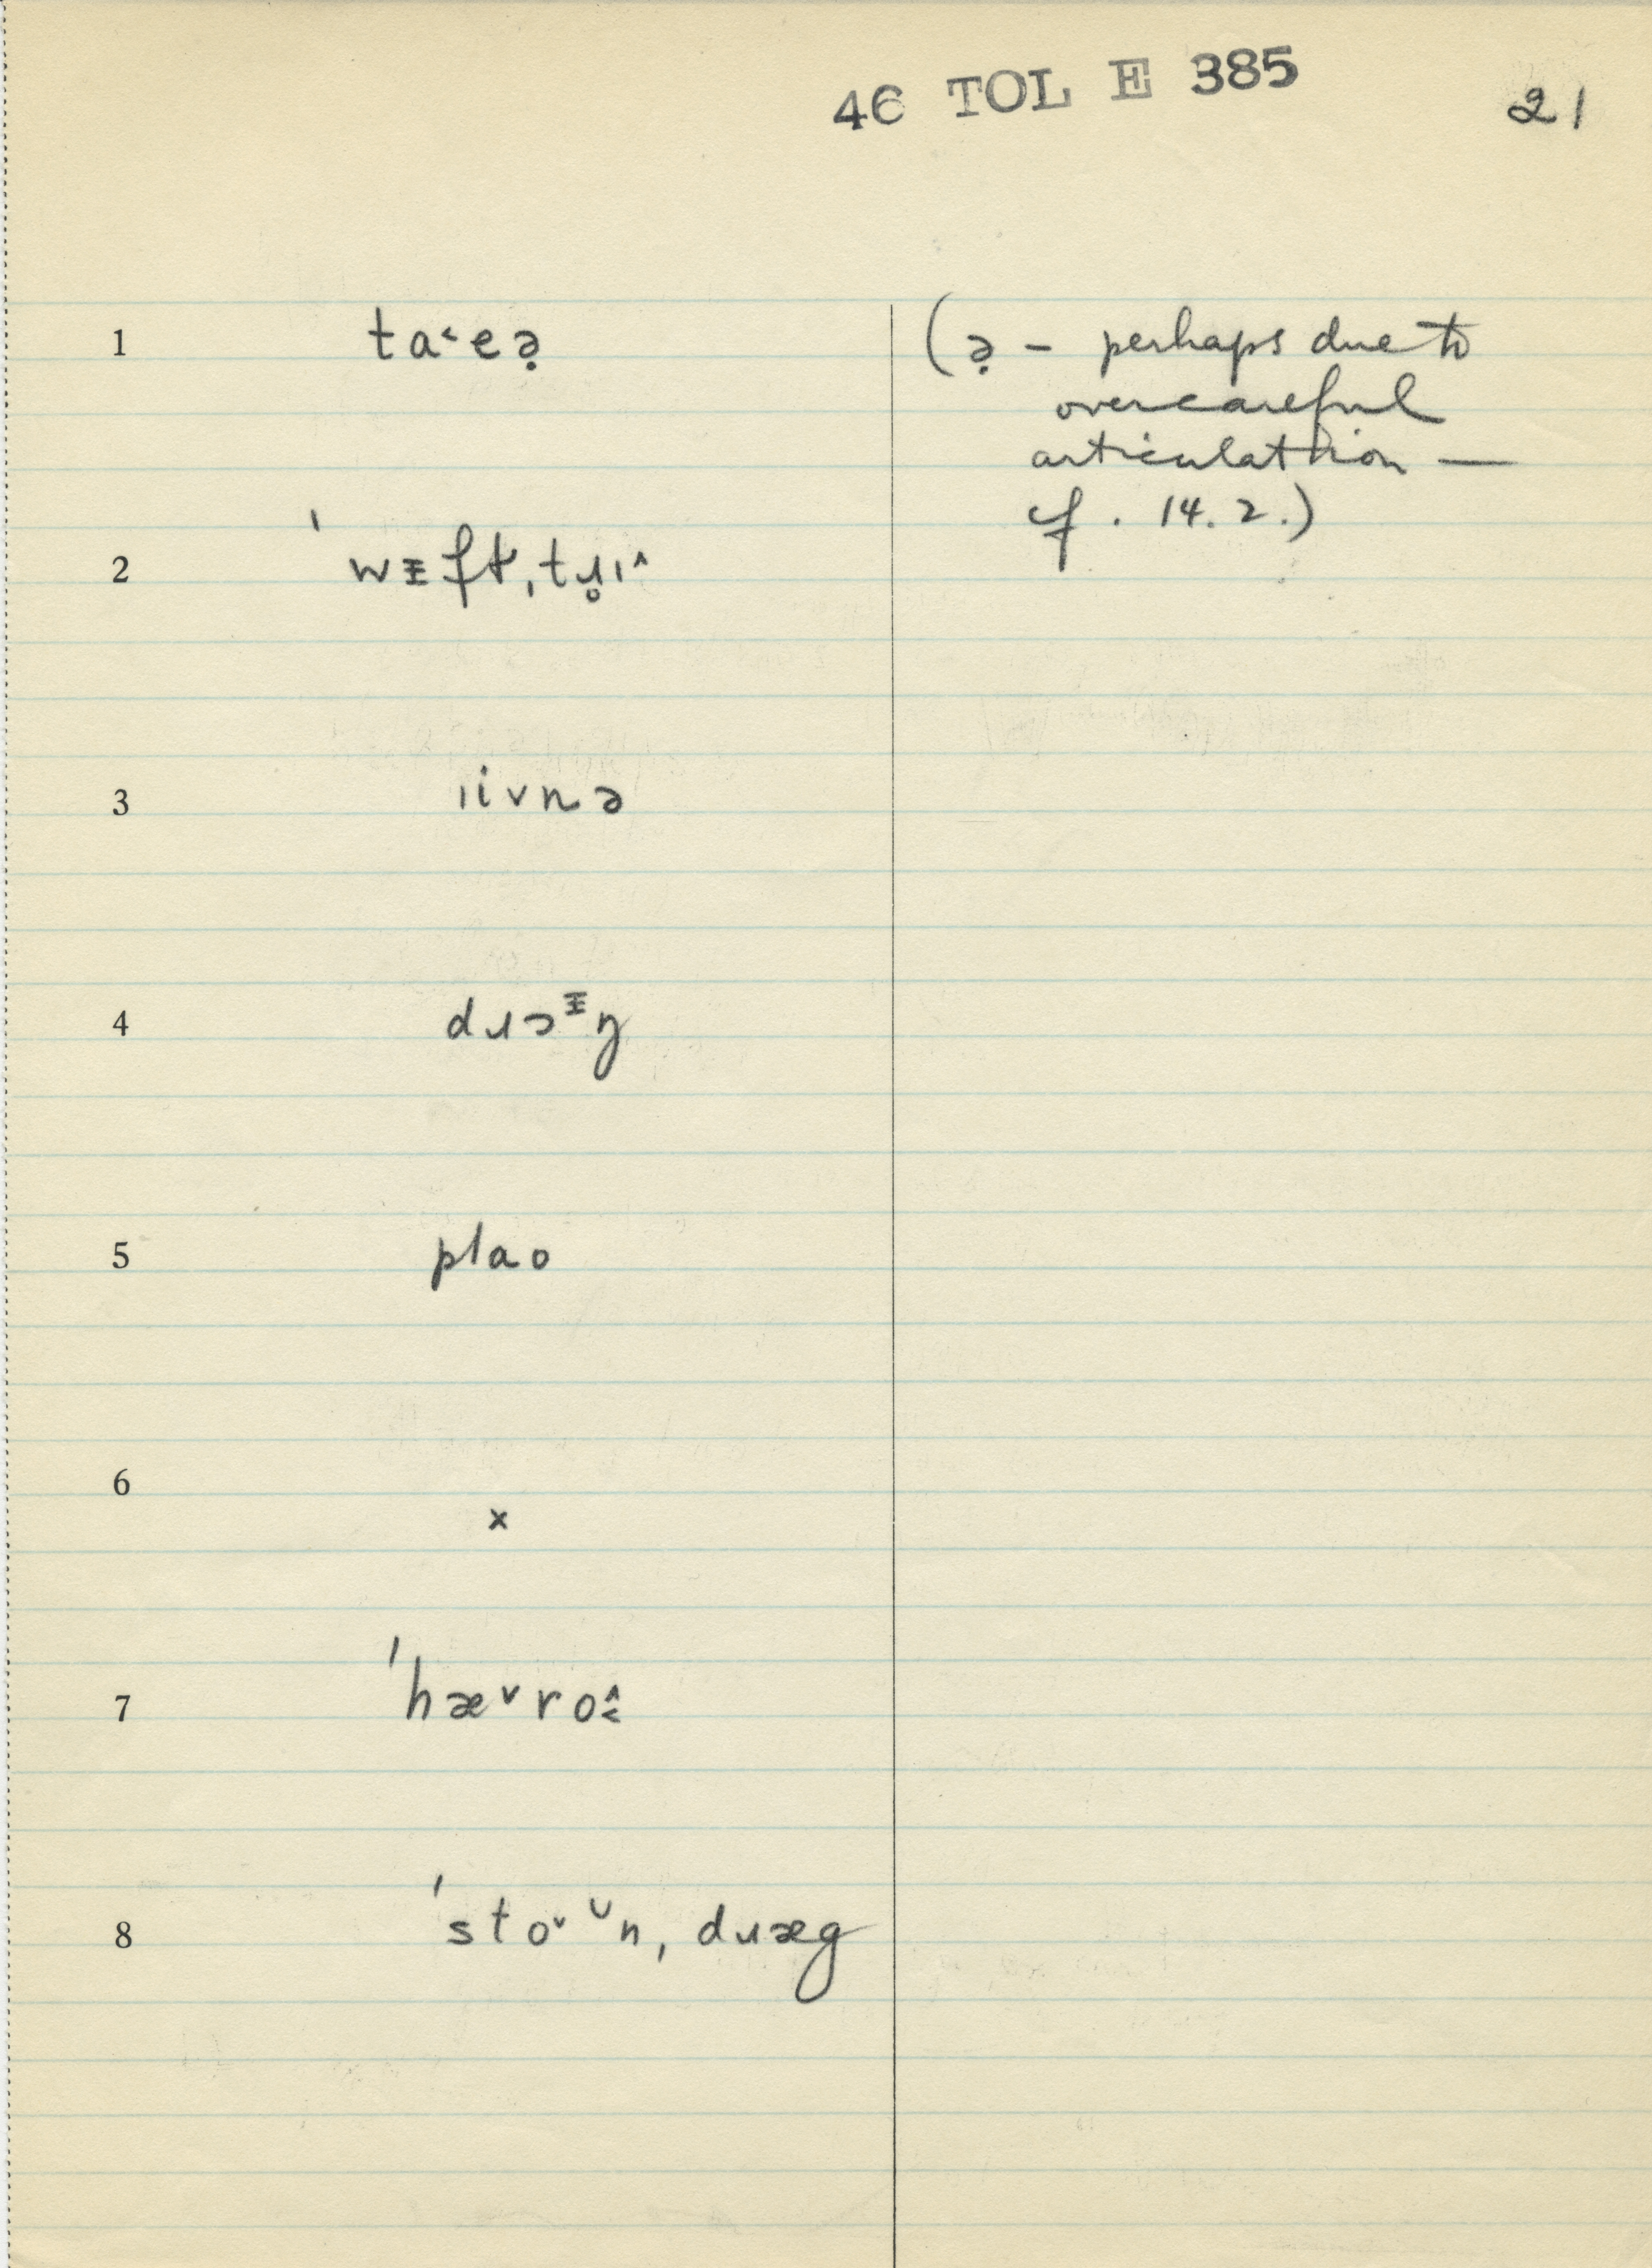 46 TOL E 385
21
1 ta˂eə̣
(ə̣ – perhaps due to
overcareful
articulation —
cf. 14.2.)
2 ˈwᵻft̬ˌtɹ̥ɪ˄
3 ɪivnə
4 dɹɔᵻŋ
5 plao
6 x
7 ˈhæ˅ro˄˂
8 ˈsto˅ᶷnˌdɹæg